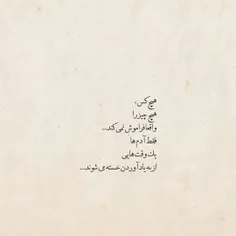 هیچ‌کس،
هیچ چیز را
واقعا فراموش نمی‌کند...
فقط آدم‌ها
یک وقت‌هایی
از به یاد آوردن خسته می‌شوند...